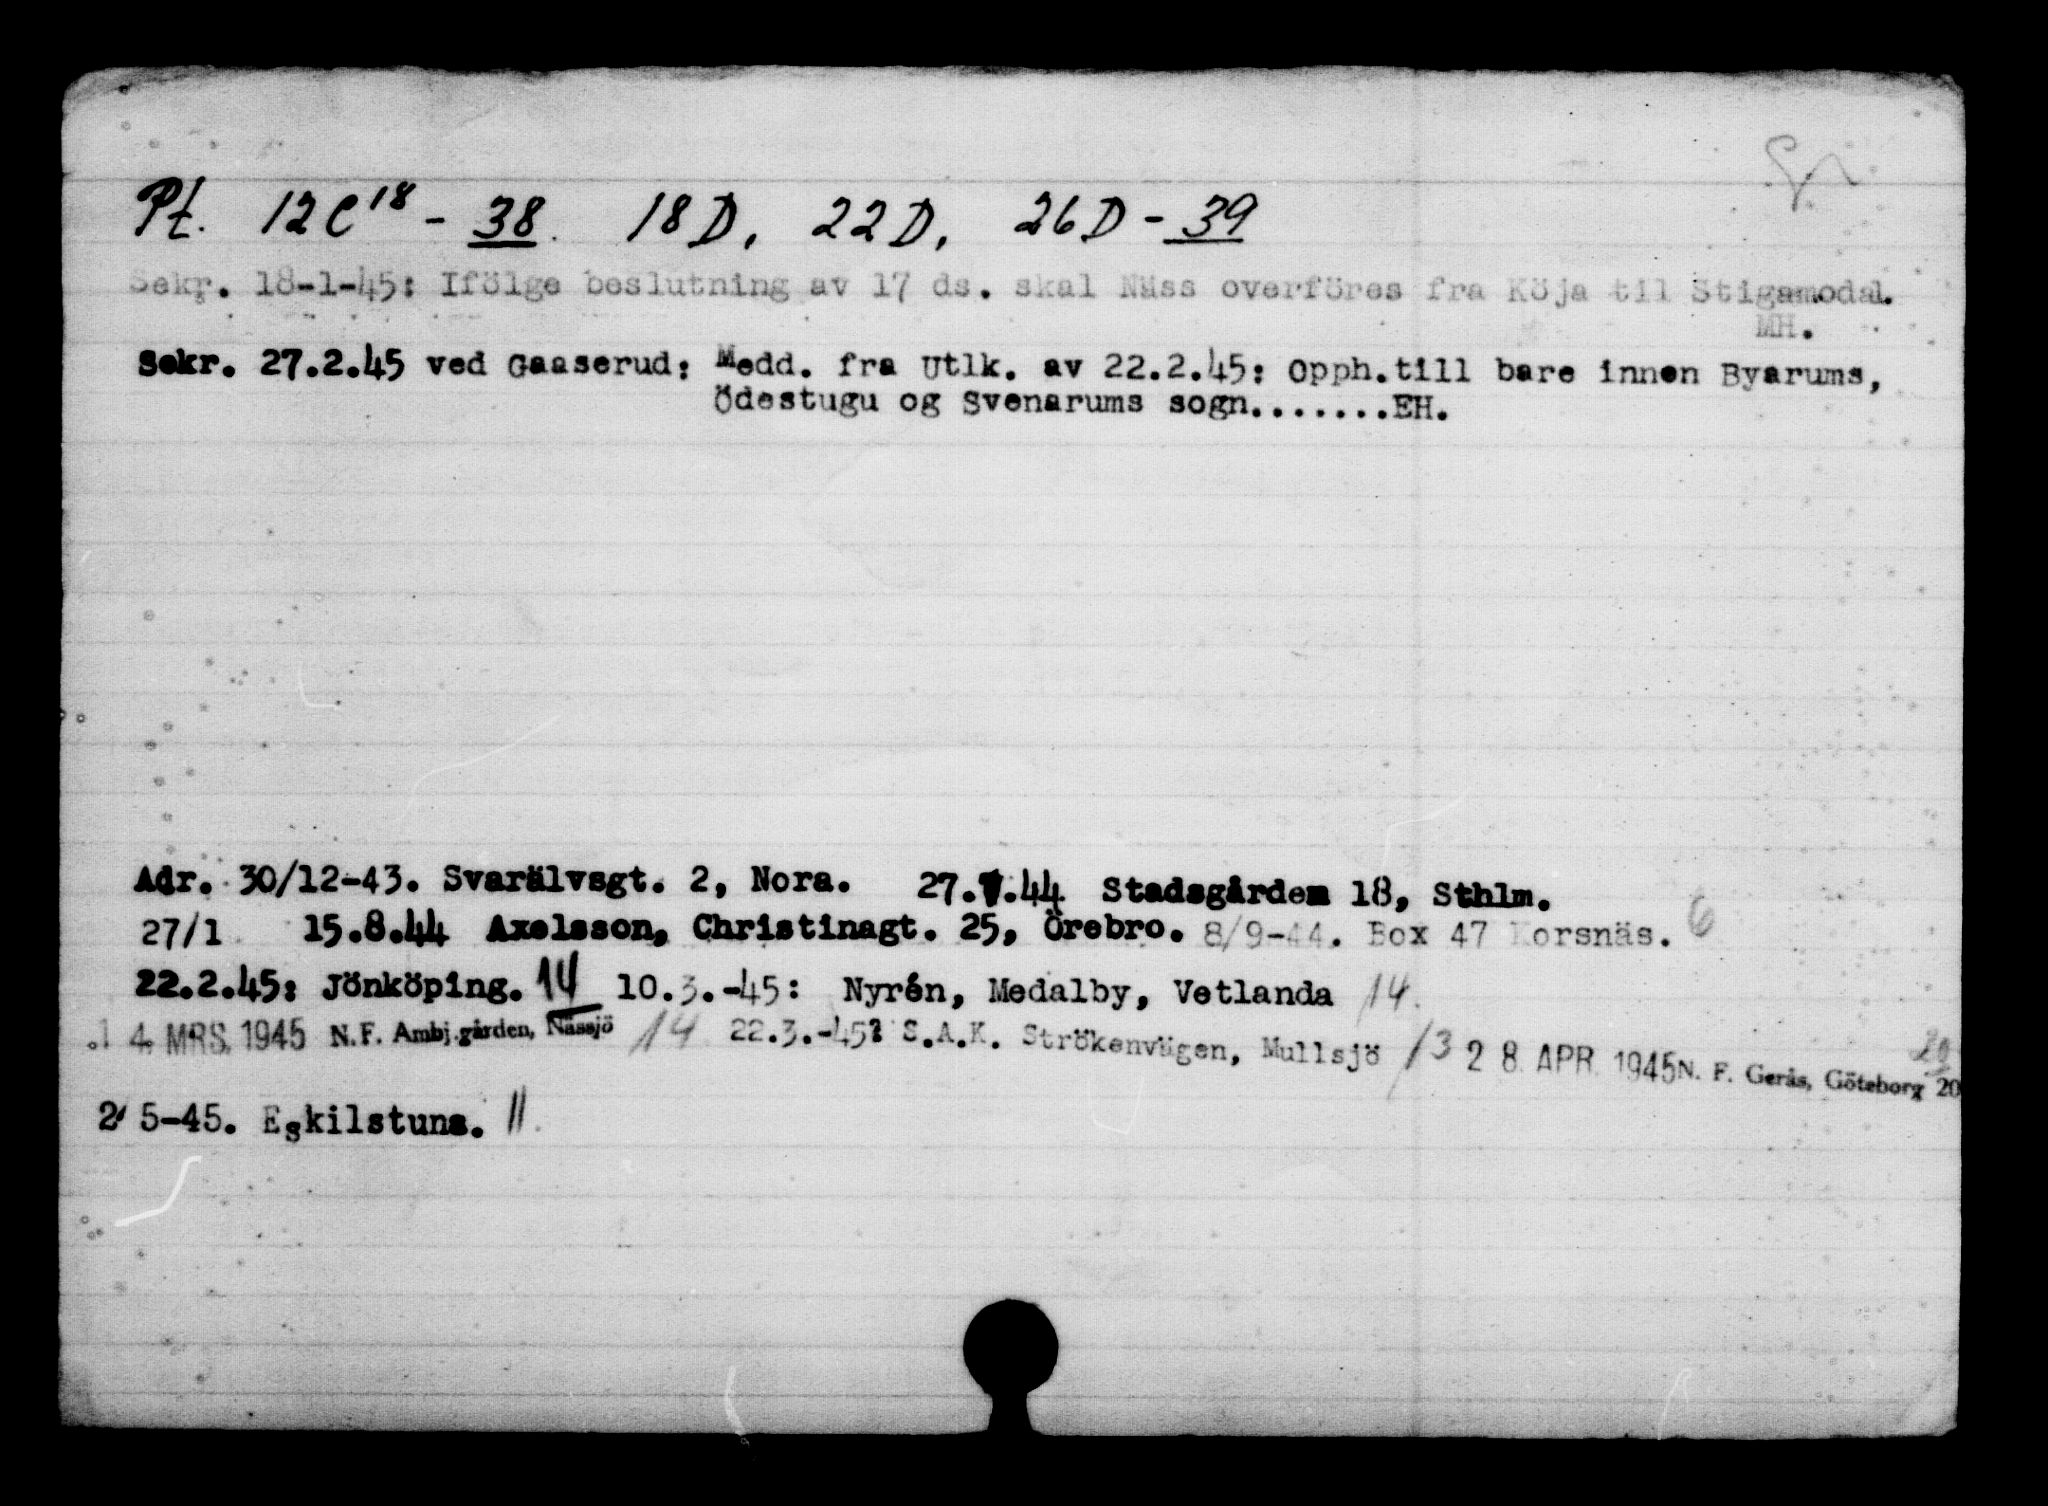 Pt. 12C18 - 38. 18D, 22D, 26D - 39
Sekr. 18-1-45: Ifölge beslutning av 17 ds. skal Näss overföres fra Köja til Stigamodal.
MH.
Sekr. 27.2.45 ved Gaaserud: Medd. fra Utlk. av 22.2.45: Opph.till bare innen Byarums,
Ödestugu og Svenarums sogn.......EH.
Adr. 30/12-43. Svarälvsgt. 2, Nora. 27.7.44 Stadsgården 18, Sthlm.
27/1 15.8.44 Axelsson, Christinagt. 25, Örebro. 8/9-44. Box 47 Korsnäs. 6
22.2.45: Jönköping. 14 10.3.-45: Nyrén, Medalby, Vetlanda 14.
14 MRS. 1945 N.F. Ambj.gården, Nässjö 14 22.3.-45: S.A.K. Strökenvägen, Mullsjö 13 28. APR. 1945 N. F. Gerås, Göteborg 20
20
2 5-45. Eskilstuna. 11.